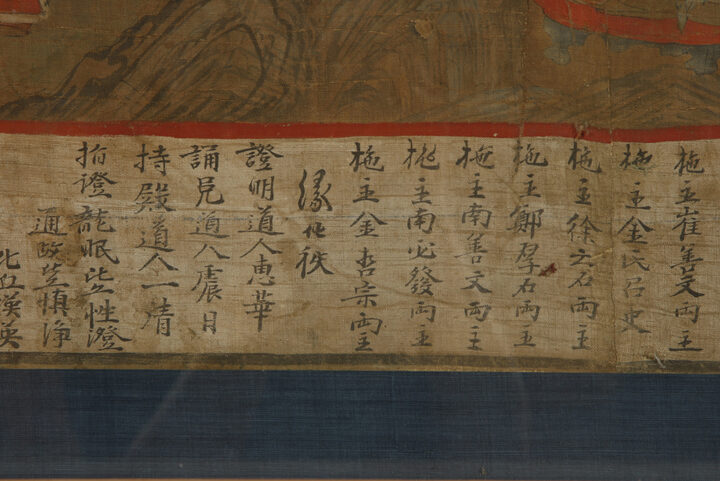 施主崔善文両主
施主金氏召史
施主徐石両主
施主鄭厚石両主
施主南善文両主
施主南必發両主
施主金哲宗両主
緣化秩
證明道人惠華
誦呪道人震日
持殿道人一清
證龍眠比丘性澄
通政慎淨
比丘漢英